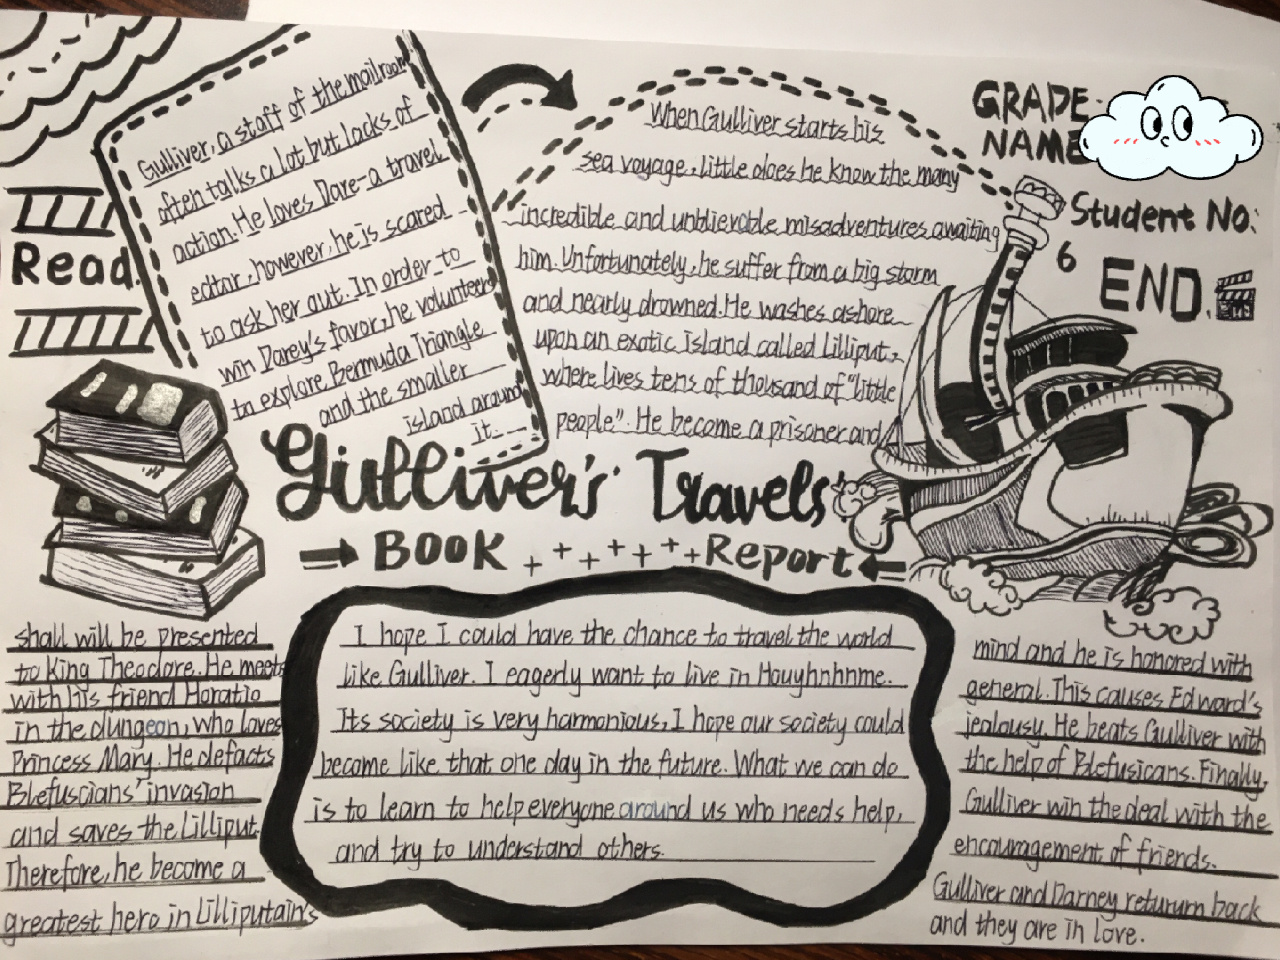 Read
Gulliver, a staff of the mailroom
often talks a lot but lacks of
action. He loves Dare-a travel
edtor, however, he is scared
to ask her out. In order to
win Darey's favor, he volunteers
to explore Bermuda Triangle
and the smaller
island around
it.
When Gulliver starts his
sea voyage, little does he know the many
incredible and unblievable misadventures awaiting
him. Unfortunately, he suffer from a big storm
and nearly drowned. He washes ashore
upon an exotic island called Lilliput,
where lives tens of thousand of "little
people". He become a prisoner and
GRADE:
NAME
Student No:
6
END.
Gulliver's Travels
BOOK + + + + + + Report
shall will be presented
to King Theodore. He meets
with his friend Horatio
in the dungeon, who loves
Princess Mary. He defacts
Blefuscians' invasion
and saves the Lilliput.
Therefore, he become a
greatest hero in Lilliputain's
I hope I could have the chance to travel the world
like Gulliver. I eagerly want to live in Houyhnhnme.
Its society is very harmonious, I hope our society could
become like that one day in the future. What we can do
is to learn to help everyone around us who needs help,
and try to understand others.
mind and he is honored with
general. This causes Edward's
jealousy. He beats Gulliver with
the help of Blefusicans. Finally,
Gulliver win the deal with the
encoumgement of friends.
Gulliver and Darney retururn back
and they are in love.